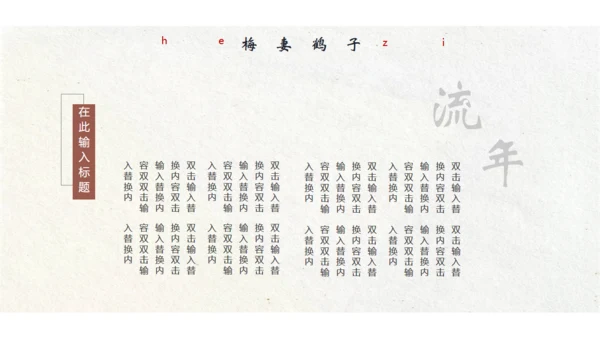 h e 梅妻鹤子 z i
流年
在此输入标题
双击输入替
换内容双击
输入替换内
容双双击输
入替换内
双击输入替
换内容双击
输入替换内
容双双击输
入替换内
双击输入替
换内容双击
输入替换内
容双双击输
入替换内
双击输入替
换内容双击
输入替换内
容双双击输
入替换内
双击输入替
换内容双击
输入替换内
容双双击输
入替换内
双击输入替
换内容双击
输入替换内
容双双击输
入替换内
双击输入替
换内容双击
输入替换内
容双双击输
入替换内
双击输入替
换内容双击
输入替换内
容双双击输
入替换内